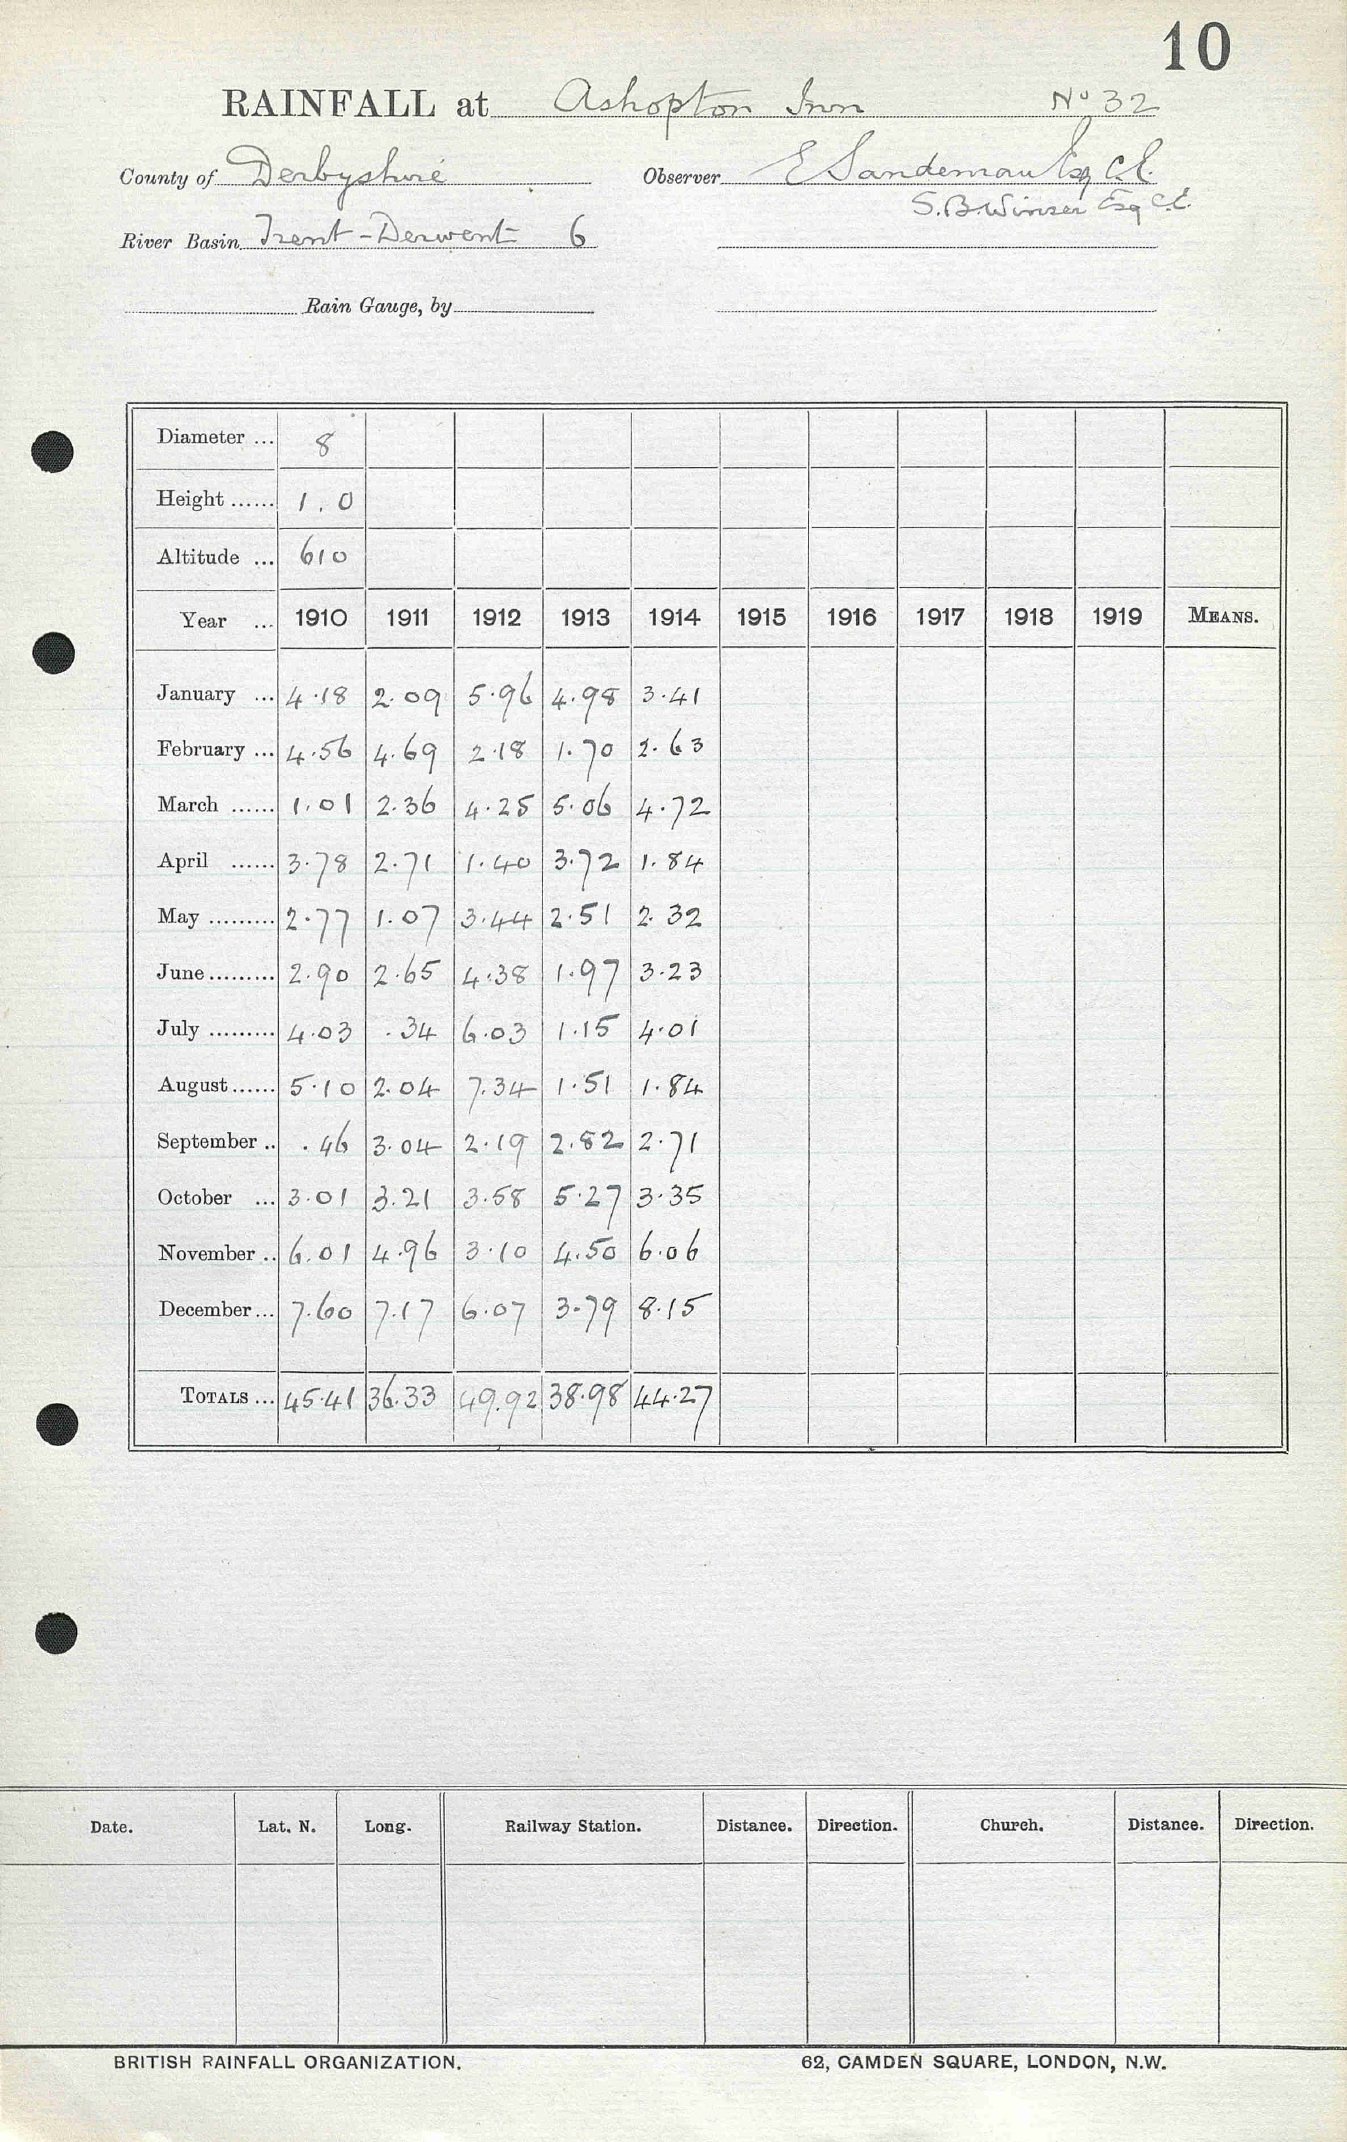 10
RAINFALL at Ashopton Inn No 32
County of Derbyshire Observer E Sandeman Esq C.E.
S.B. Winser Esq C.E.
River Basin Trent-Derwent 6
Rain Gauge, by
Diameter ... 8
Height ...... 1.0
Altitude ... 610
Year ... 1910 1911 1912 1913 1914 1915 1916 1917 1918 1919 MEANS.
January ... 4.18 2.09 5.96 4.98 3.41
February ... 4.56 4.69 2.18 1.70 2.63
March ...... 1.01 2.36 4.25 5.06 4.72
April ...... 3.78 2.71 1.40 3.72 1.84
May ......... 2.77 1.07 3.44 2.51 2.32
June ......... 2.90 2.65 4.38 1.97 3.23
July ......... 4.03 .34 6.03 1.15 4.01
August ...... 5.10 2.04 7.34 1.51 1.84
September .. .46 3.04 2.19 2.82 2.71
October ... 3.01 3.21 3.58 5.27 3.35
November .. 6.01 4.96 3.10 4.50 6.06
December ... 7.60 7.17 6.07 3.79 8.15
TOTALS ... 45.41 36.33 49.92 38.98 44.27
Date. Lat. N. Long. Railway Station. Distance. Direction. Church. Distance. Direction.
BRITISH RAINFALL ORGANIZATION. 62, CAMDEN SQUARE, LONDON, N.W.